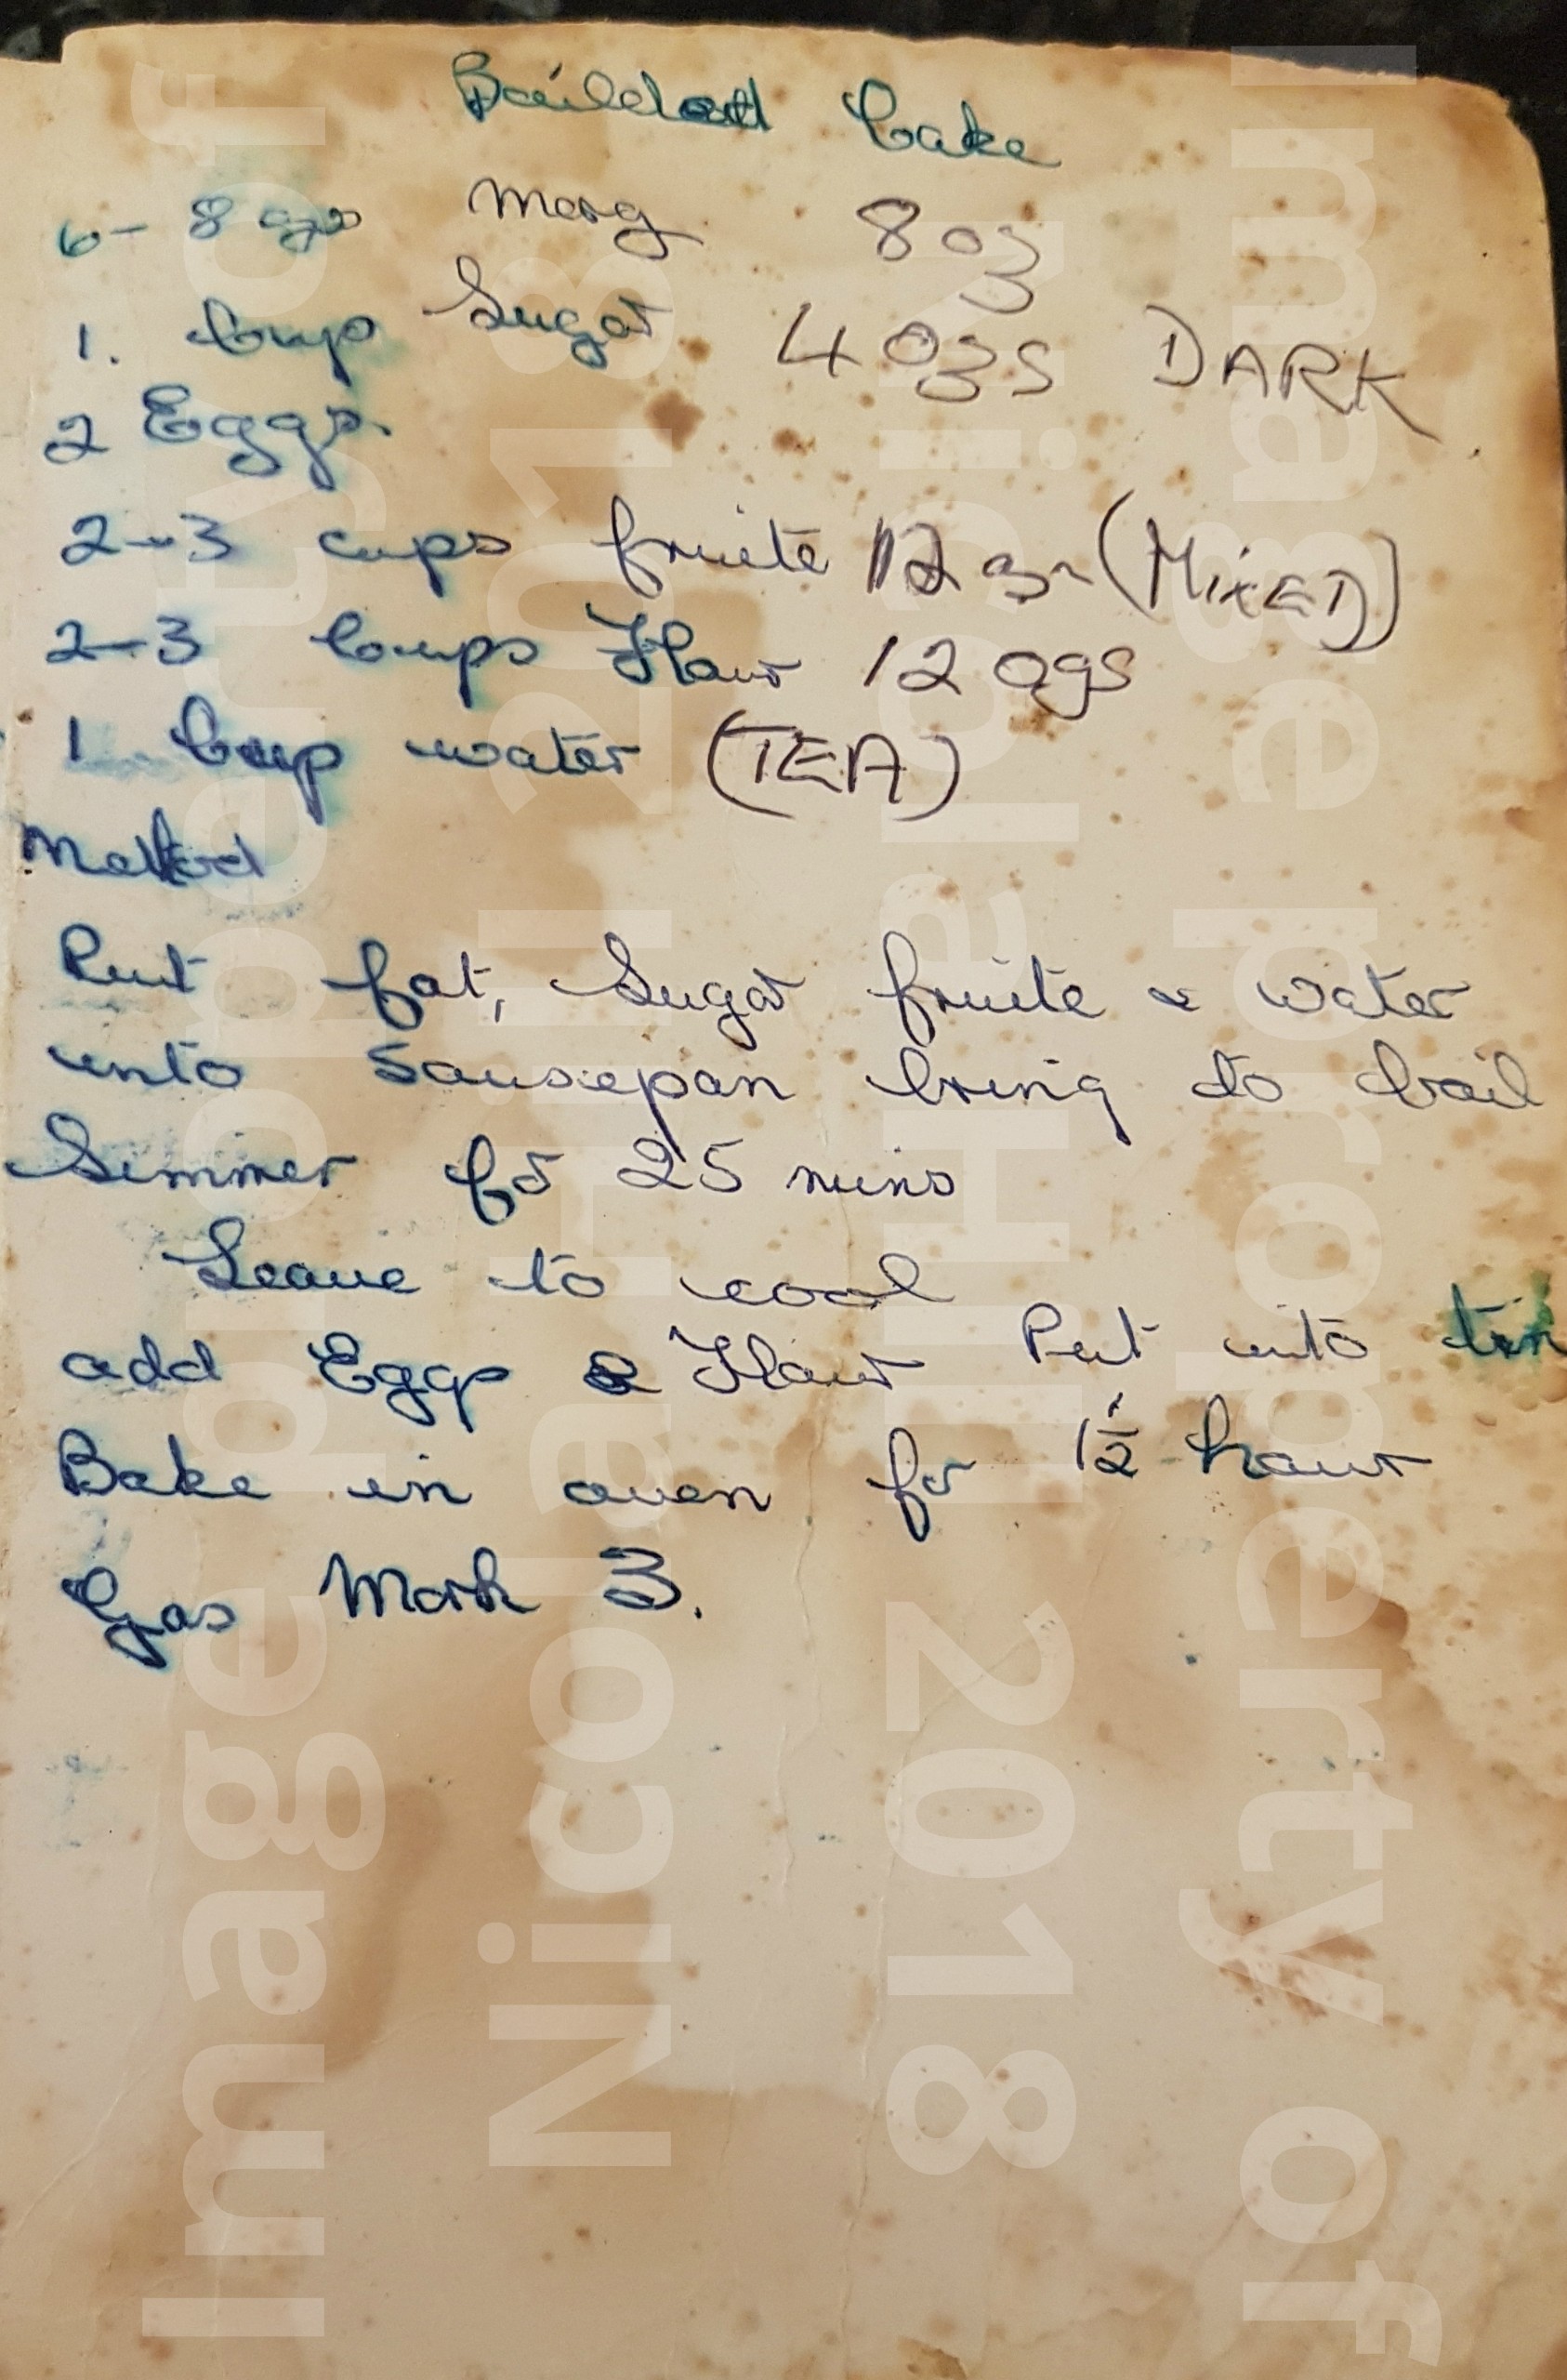 Boiled Cake
6-8 ozs Marg 8 oz
1. Cup Sugar 4 ozs DARK
2 Eggs.
2-3 cups fruite 12 oz (MIXED)
2-3 Cups Flour 12 ozs
1 Cup water (TEA)
Method
Put fat, Sugar fruite & water
into Sausepan bring to boil
Simmer for 25 mins
Leave to cool
add Eggs & Flour Put into tin
Bake in oven for 1½ hour
Gas Mark 3.
Image property of
Nicola Hill 2018
Nicola Hill 2018
Image property of